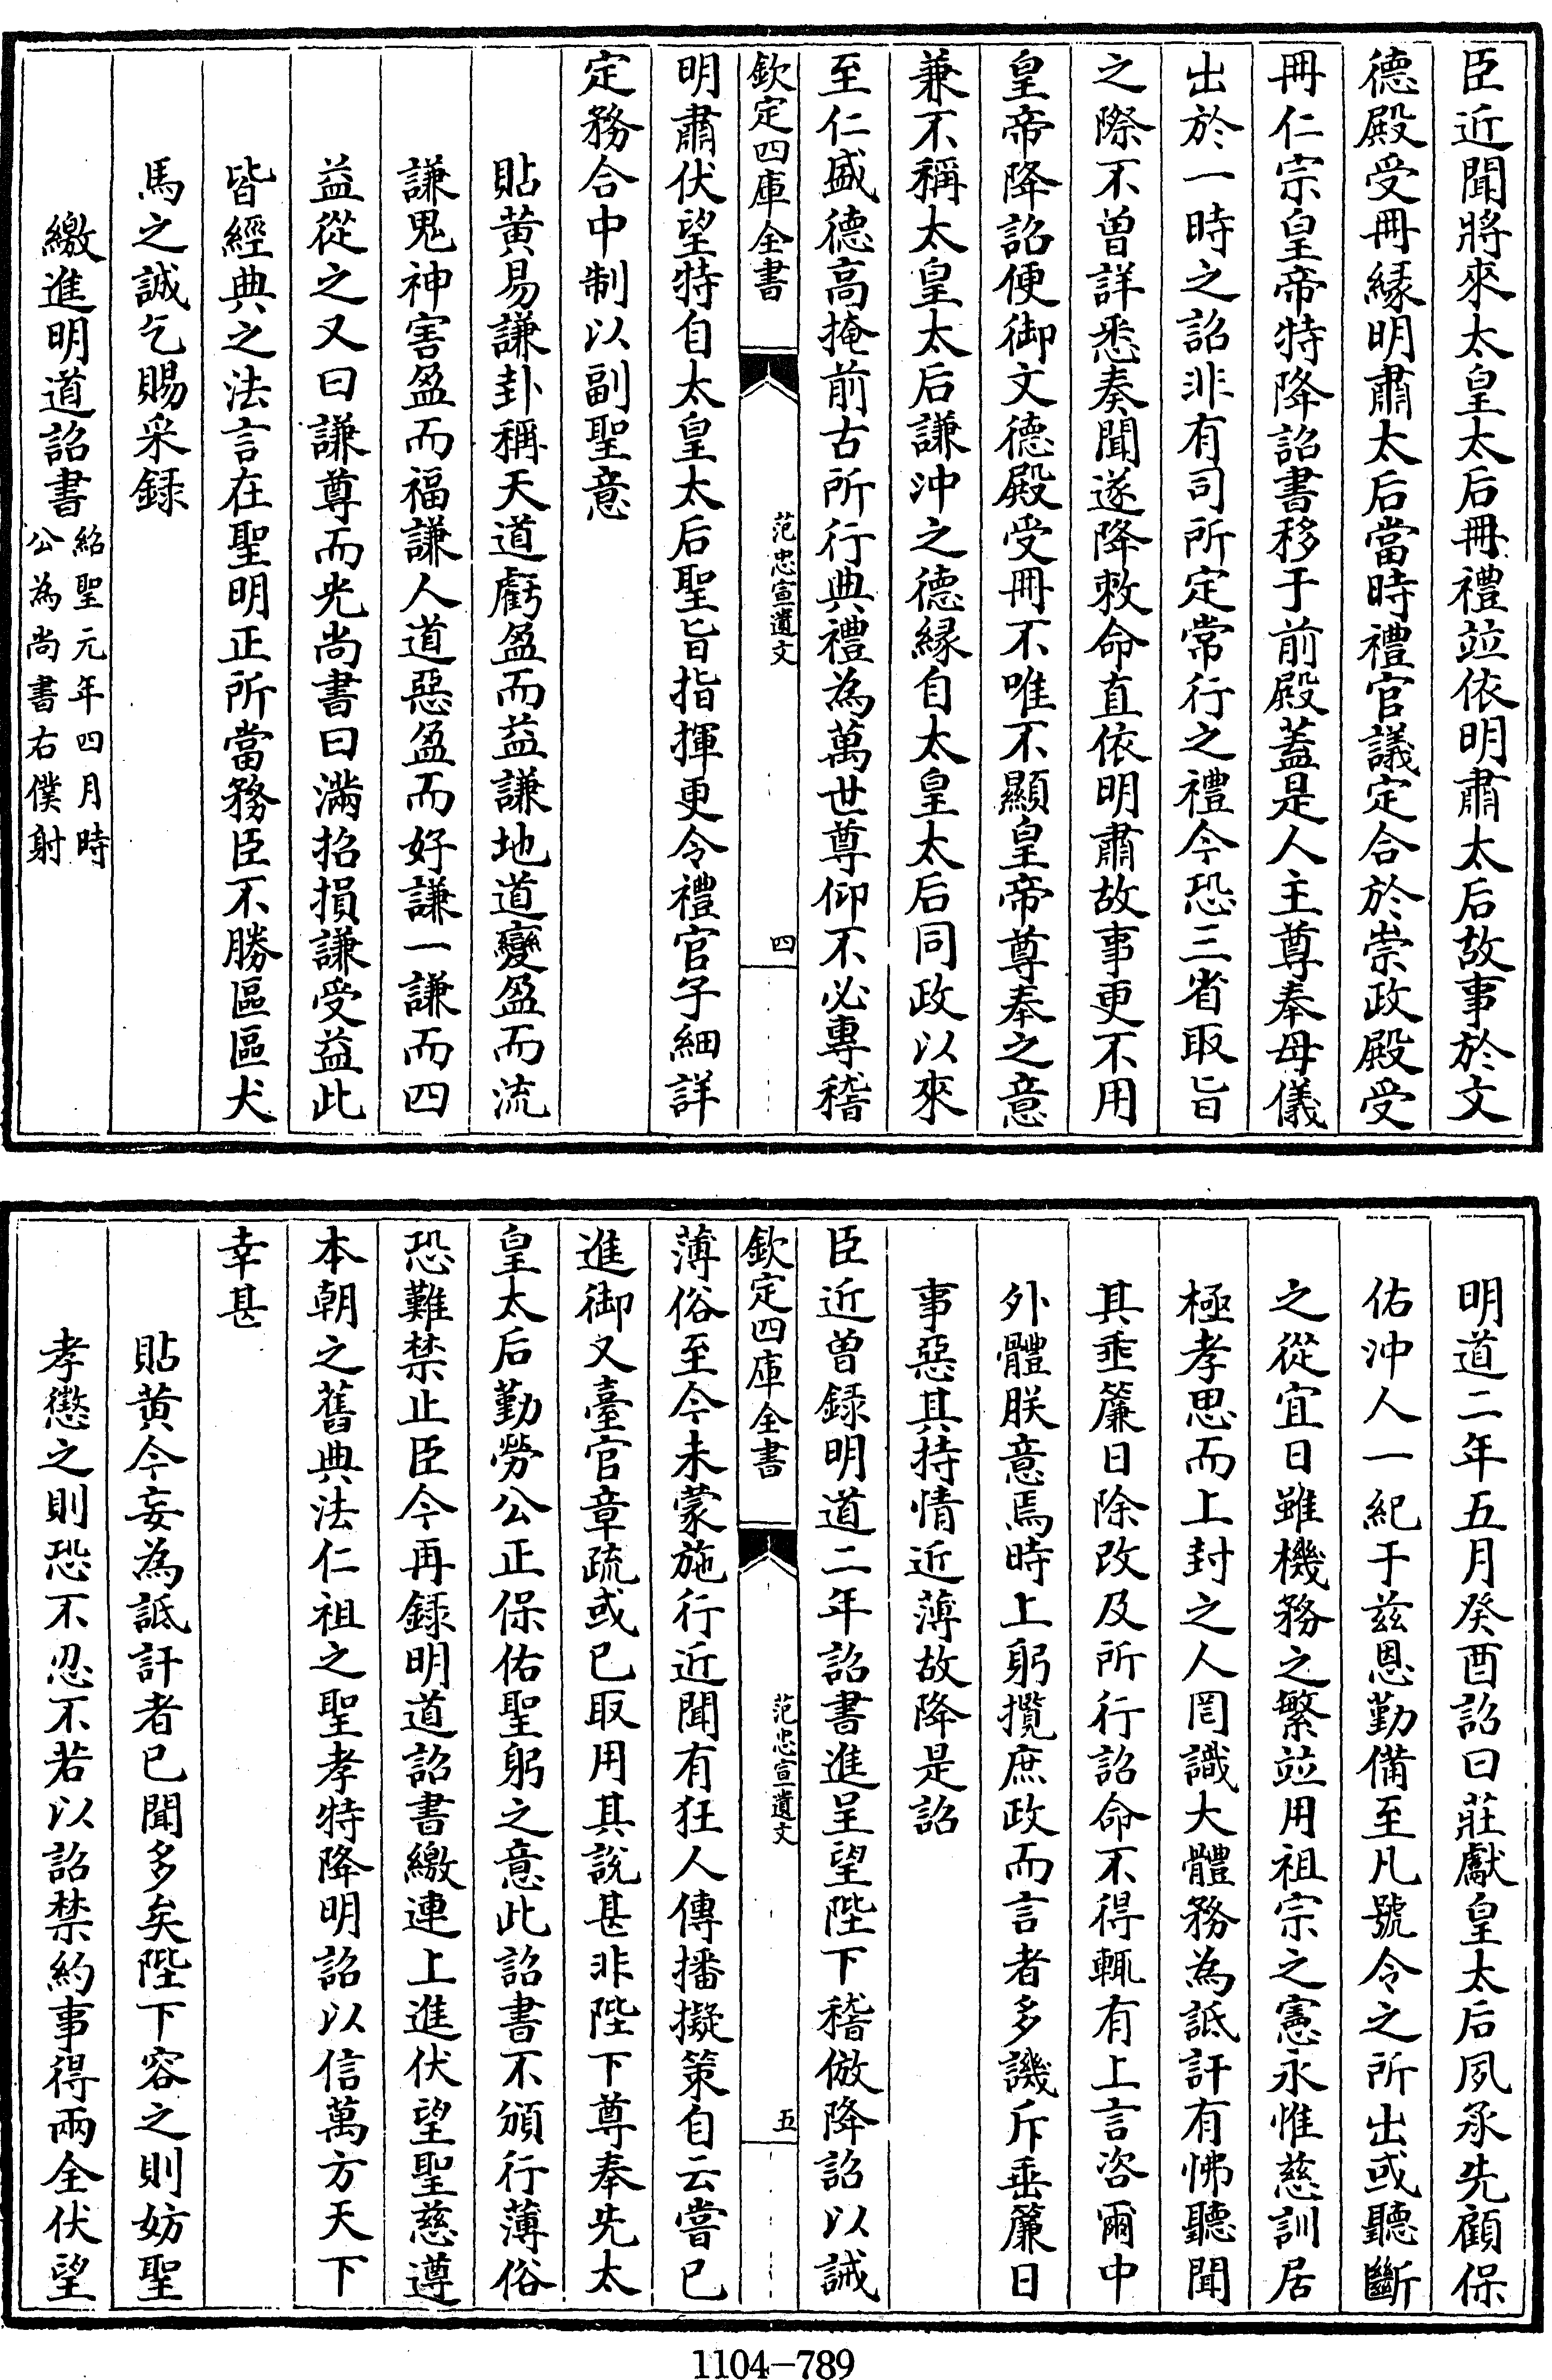 臣近聞將來太皇太后冊禮竝依明肅太后故事於文
德殿受冊縁明肅太后當時禮官議定合於崇政殿受
冊仁宗皇帝特降詔書移于前殿蓋是人主尊奉母儀
出於一時之詔非有司所定常行之禮今恐三省取旨
之際不曽詳悉奏聞遂降敕命直依明肅故事更不用
皇帝降詔便御文德殿受冊不唯不顯皇帝尊奉之意
兼不稱太皇太后謙沖之德縁自太皇太后同政以來
至仁盛德高掩前古所行典禮為萬世尊仰不必專稽
欽定四庫全書
范忠宣遺文
四
明肅伏望特自太皇太后聖旨指揮更令禮官子細詳
定務合中制以副聖意
貼黄易謙卦稱天道虧盈而益謙地道變盈而流
謙鬼神害盈而福謙人道惡盈而好謙一謙而四
益從之又曰謙尊而光尚書曰滿招損謙受益此
皆經典之法言在聖明正所當務臣不勝區區犬
馬之誠乞賜采録
繳進明道詔書
紹聖元年四月時
公為尚書右僕射
明道二年五月癸酉詔曰莊獻皇太后夙承先顧保
佑沖人一紀于兹恩勤備至凡號令之所出或聽斷
之從宜日雖機務之繁竝用祖宗之憲永惟慈訓居
極孝思而上封之人罔識大體務為詆訐有怫聽聞
其垂簾日除改及所行詔命不得輒有上言咨爾中
外體朕意焉時上躬攬庶政而言者多譏斥垂簾日
事惡其持情近薄故降是詔
臣近曽録明道二年詔書進呈望陛下稽倣降詔以誡
欽定四庫全書
范忠宣遺文
五
薄俗至今未蒙施行近聞有狂人傳播擬策自云嘗已
進御又臺官章疏或已取用其說甚非陛下尊奉先太
皇太后勤勞公正保佑聖躬之意此詔書不頒行薄俗
恐難禁止臣今再録明道詔書繳連上進伏望聖慈遵
本朝之舊典法仁祖之聖孝特降明詔以信萬方天下
幸甚
貼黄今妄為詆訐者已聞多矣陛下容之則妨聖
孝懲之則恐不忍不若以詔禁約事得兩全伏望
1104-789